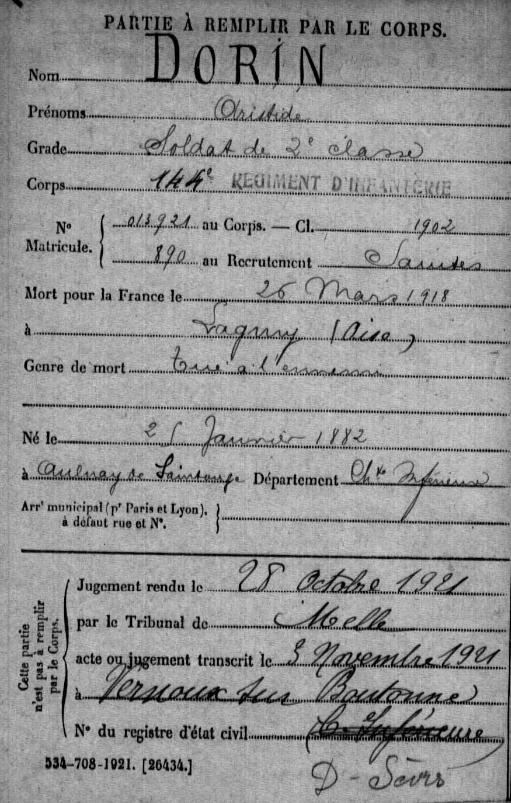 PARTIE À REMPLIR PAR LE CORPS.
Nom DORIN
Prénoms Aristide
Grade Soldat de 2e classe
Corps 144e REGIMENT D'INFANTERIE
No Matricule. { 013921 au Corps. — Cl. 1902
890 au Recrutement Saintes
Mort pour la France le 26 Mars 1918
à Lagny (Oise)
Genre de mort tué à l'ennemi
Né le 25 Janvier 1882
à Aulnay de Saintonge Département Chte Inférieure
Arrt municipal (pr Paris et Lyon), }
à défaut rue et No.
Cette partie
n'est pas à remplir
par le Corps.
Jugement rendu le 28 Octobre 1921
par le Tribunal de Melle
acte ou jugement transcrit le 3 Novembre 1921
à Vernoux sur Boutonne
No du registre d'état civil C. Inférieure
D - Sèvres
534-708-1921. [26434.]